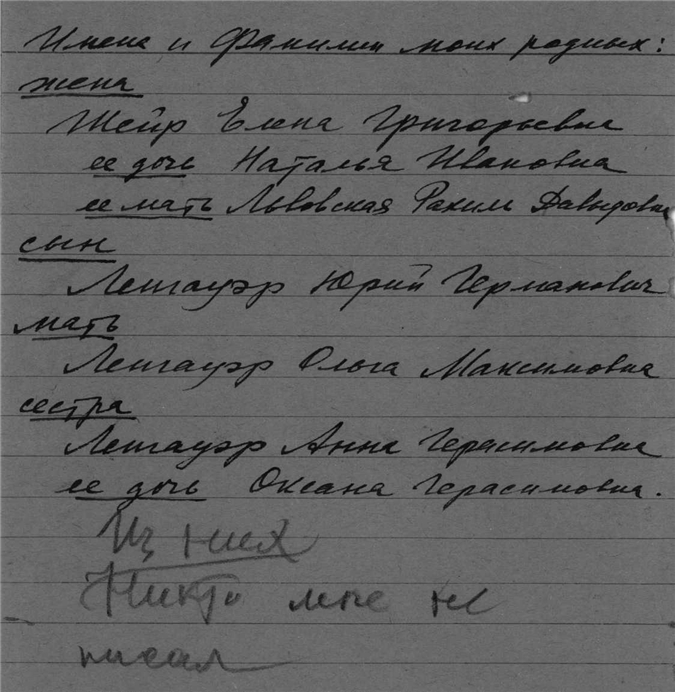 Имена и Фамилии моих родных:
жена
Жейр Елена Григорьевна
ее дочь Наталья Ивановна
ее мать Львовская Рахиль Давыдовна
сын
Ленгауэр Юрий Германович
мать
Ленгауэр Ольга Максимовна
сестра
Ленгауэр Анна Герасимовна
ее дочь Оксана Герасимовна.
Из них
Никто мне не
писал